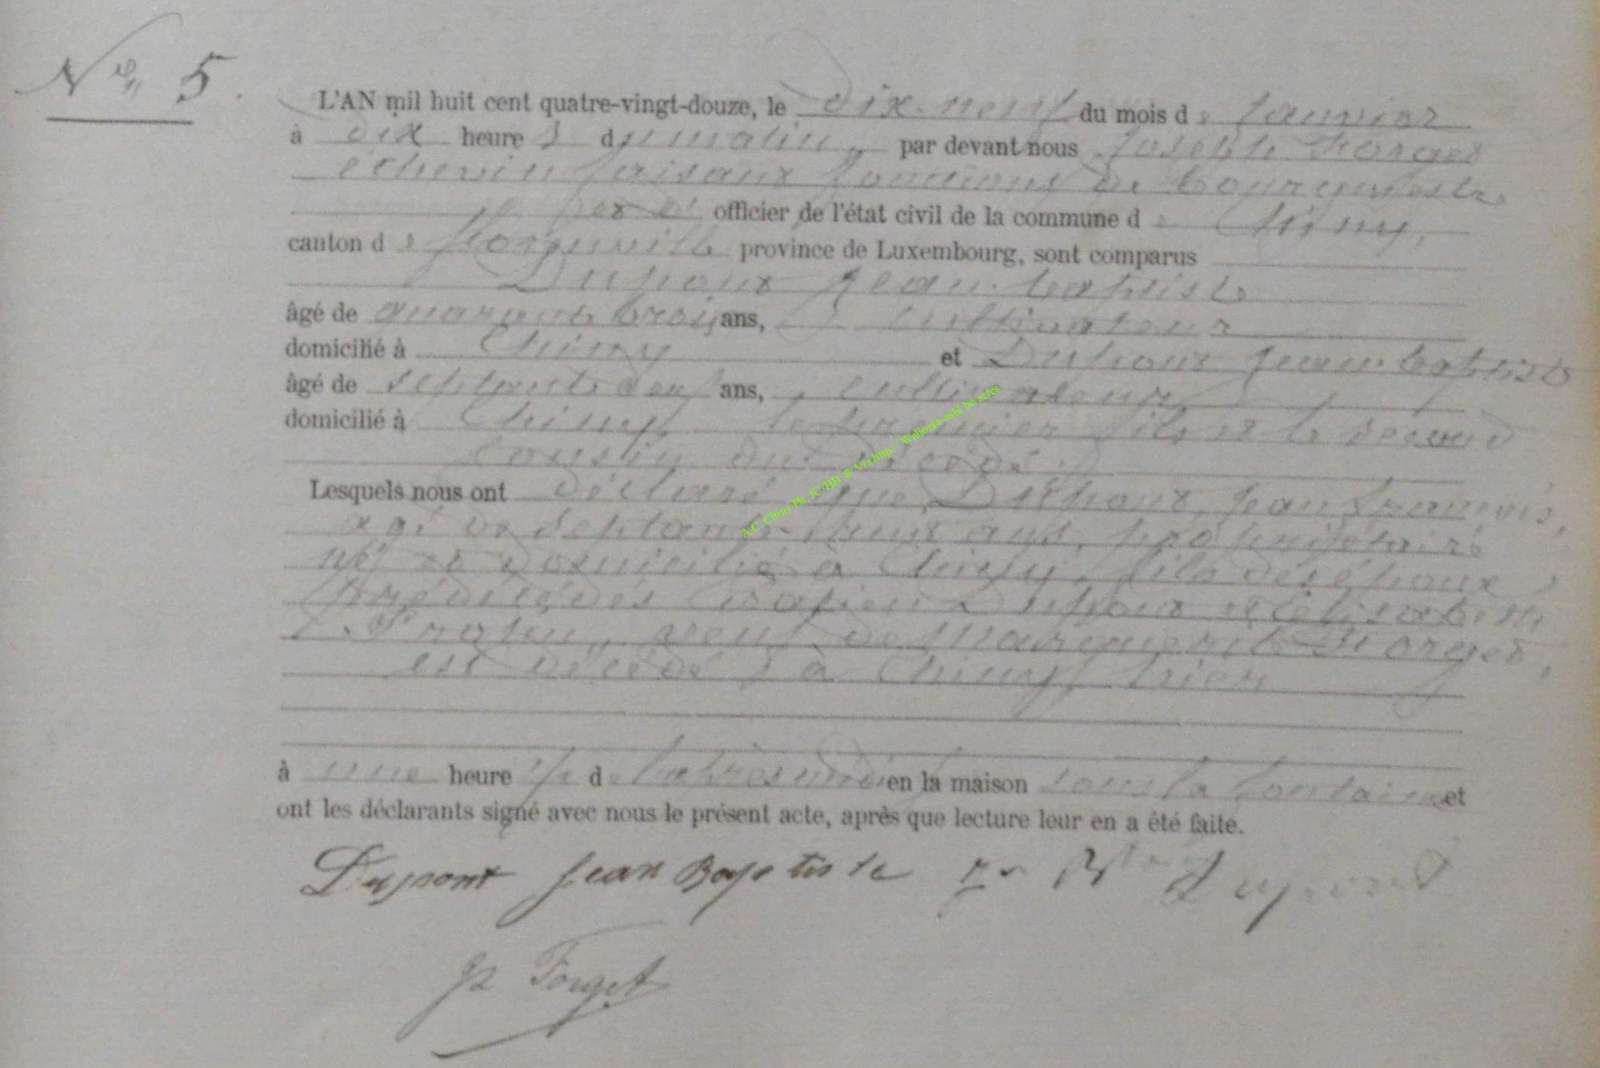 N° 5.
L'AN mil huit cent quatre-vingt-douze, le dix-neuf du mois de Janvier
à dix heures du matin, par devant nous Joseph Forget
échevin faisant fonctions de bourgmestre
officier de l'état civil de la commune de Chiny,
canton de Florenville province de Luxembourg, sont comparus
Dupont Jean-baptiste
âgé de quarante trois ans, cultivateur
domicilié à Chiny et Dupont Jean baptiste
âgé de septante deux ans, cultivateur
domicilié à Chiny, le premier fils et le second
cousin du décédé
Lesquels nous ont déclaré que Dupont Jean François,
agé de septante ans, propriétaire
né et domicilié à Chiny, fils des époux
prédécédés Dupont et Elisabeth
veuf de Marguerite Forget,
est décédé à Chiny, hier
à une heure 1/2 de l'après midi en la maison sous la fontaine et
ont les déclarants signé avec nous le présent acte, après que lecture leur en a été faite.
Dupont Jean Baptiste Jn Bte Dupont
Jp Forget